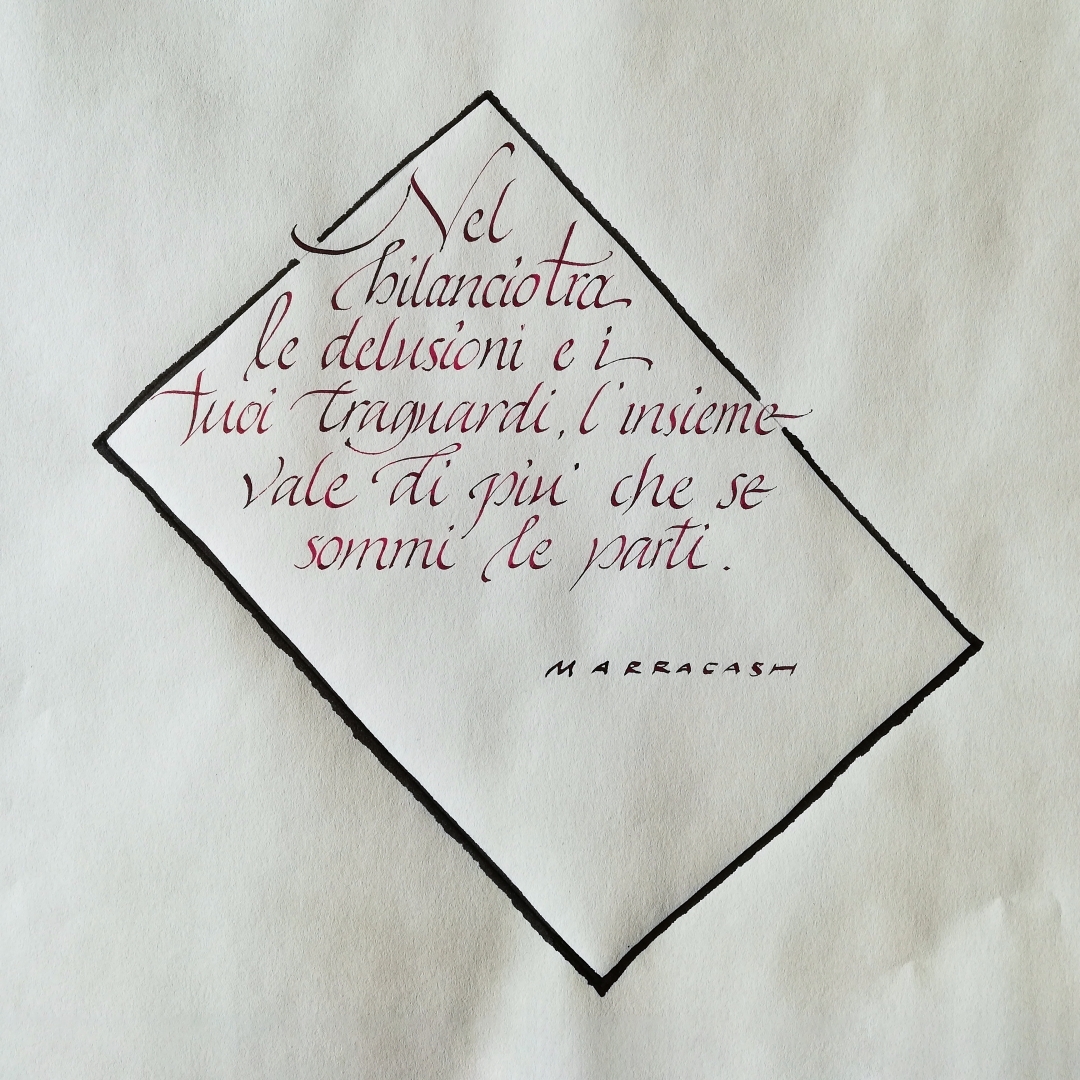 Nel
bilancio tra
le delusioni e i
tuoi traguardi, l'insieme
vale di più che se
sommi le parti.
MARRACASH